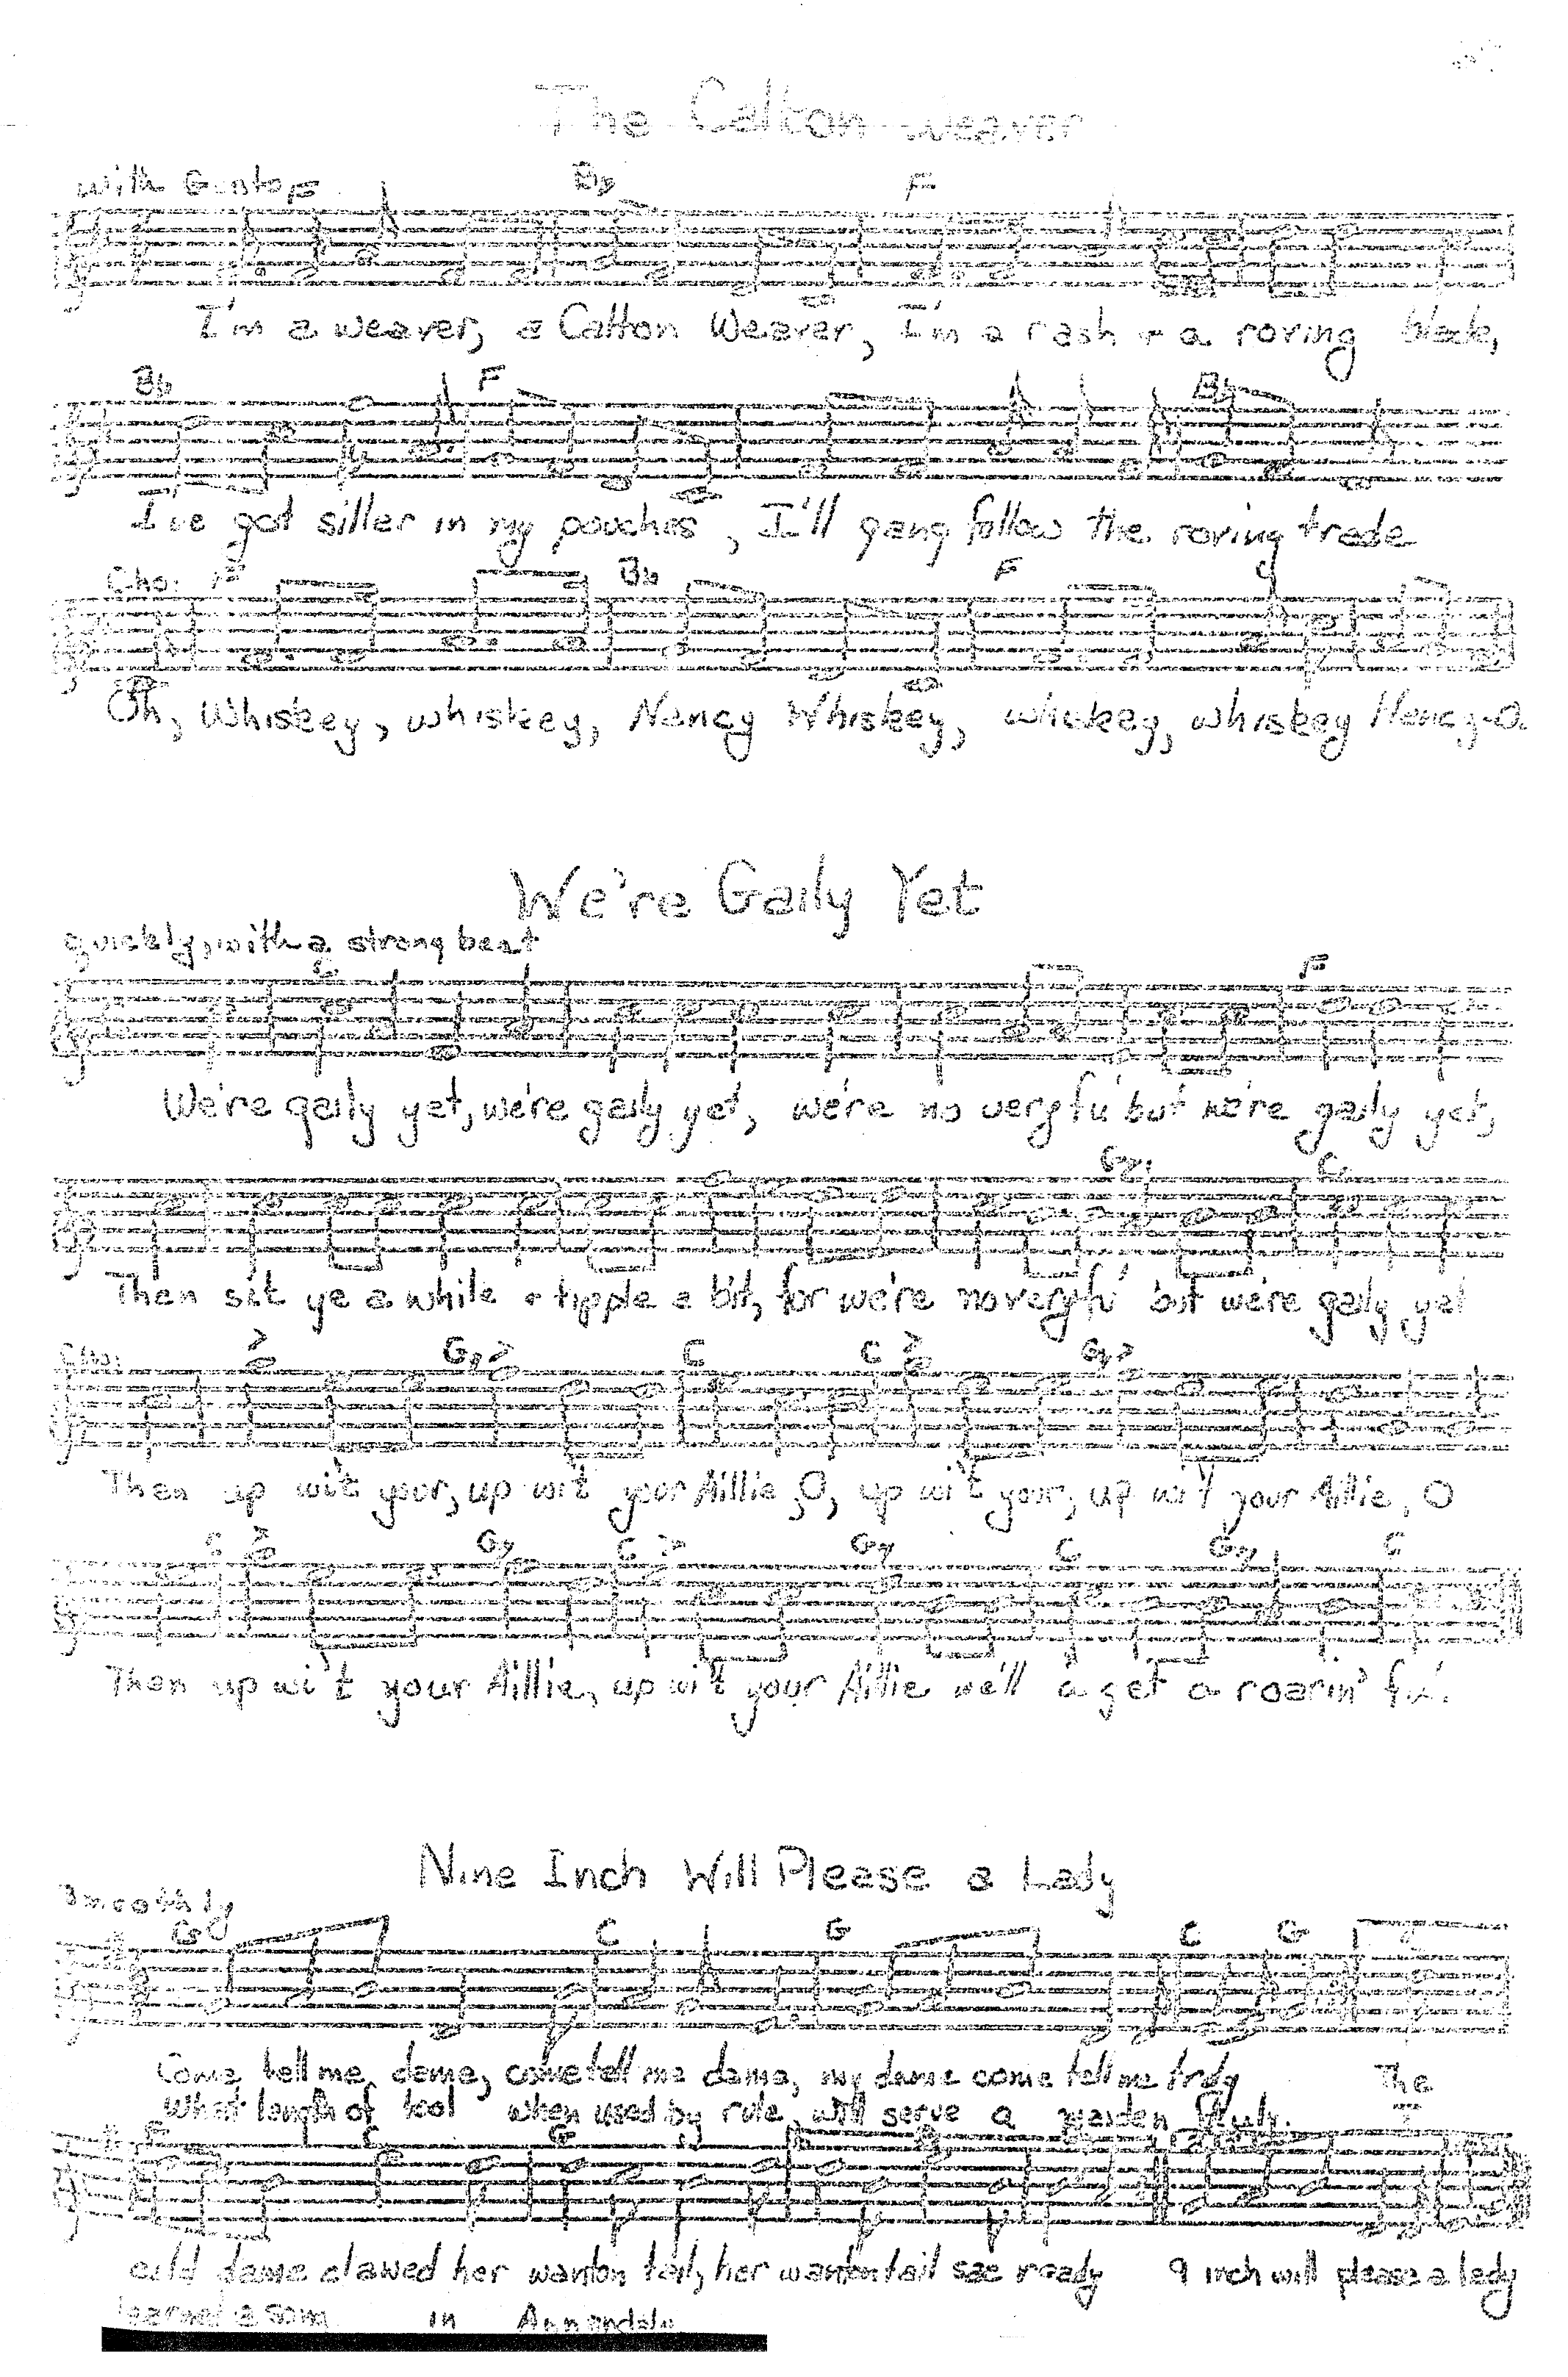 The Calton Weaver
With Gusto
Bb F
I'm a weaver, a Calton Weaver, I'm a rash + a roving blade,
Bb F Bb
I've got siller in my pouches, I'll gang follow the roving trade
Cho: F Bb F
Oh, Whiskey, whiskey, Nancy Whiskey, whiskey, whiskey Nancy-O.
We're Gaily Yet
quickly, with a strong beat
F
We're gaily yet, we're gaily yet, we're no very fu' but we're gaily yet,
G7 C
Then sit ye awhile + tipple a bit, for we're no very fu' but we're gaily yet
Cho: G7 C C G7
Then up wi't your, up wi't your Aillie, O, up wi't your, up wi't your Aillie, O
C G7 C G7 C G7 C
Then up wi't your Aillie, up wi't your Aillie we'll a' get a roarin' fu'.
Nine Inch Will Please a Lady
Smoothly
G C G C G
Come tell me dame, come tell me dame, my dame come tell me truly The
What length of tool when used by rule, will serve a maiden
auld dame clawed her wanton tail, her wanton tail sae ready 9 inch will please a lady
learned @ in Annandale